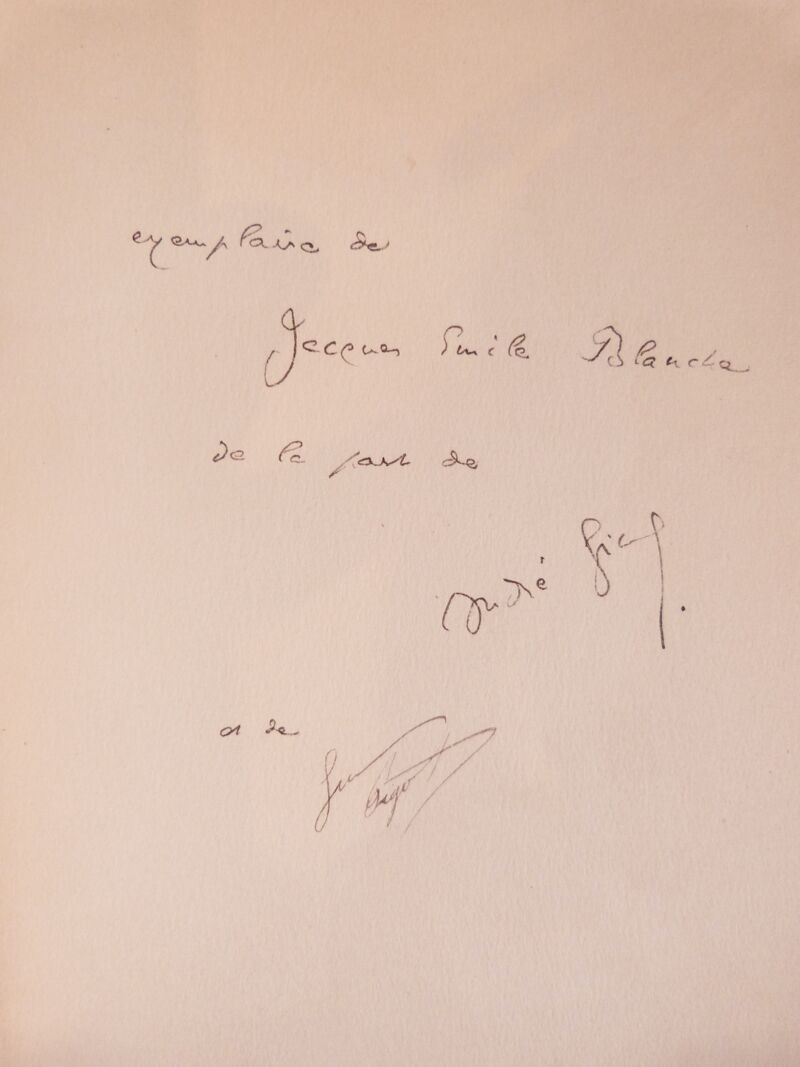 exemplaire de
Jacques Emile Blanche
de la part de
André Gide.
et de